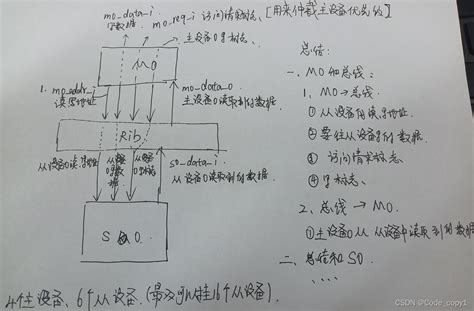 m0_data_i
写数据. m0_req_i 访问请求标志、[用来仲裁主设备优先级]
主设备0写标志.
M0
1. m0_addr_i
读写地址
m0_data_o
主设备0读取到的数据.
Rib
从设备0读写地址
从设备0写数据
从设备0写标志
s0_data_i.
从设备0读取到的数据.
S 0.
4个主设备、6个从设备.(最多可以挂16个从设备).
总结:
一、M0和总线:
1、M0→总线
①从设备的读写地址
②要往从设备写的数据.
③ 访问请求标志.
④写标志.
2、总线→M0.
①主设备0从从设备中读取到的数据.
二、总线和S0.
....
CSDN @Code_copy1